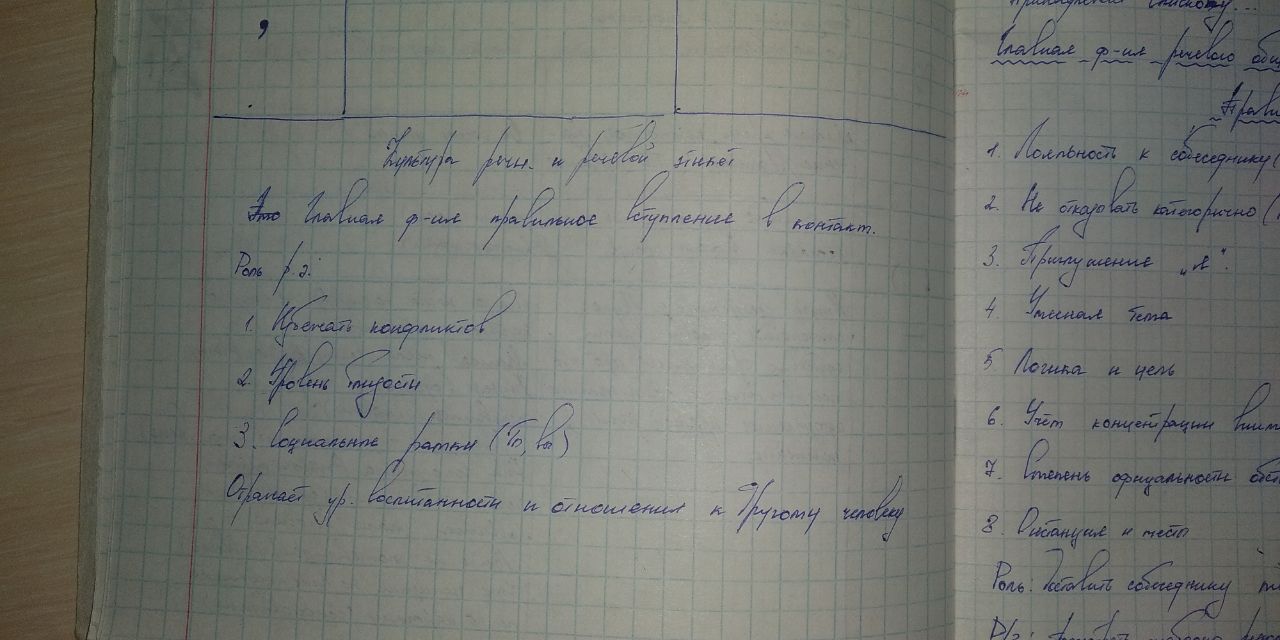 Культура речи и речевой этикет
Это Главная ф-ия правильное вступление в контакт.
Роль р.э:
1. Избежать конфликтов
2. Уровень близости
3. Социальные рамки (Ты, вы)
Отражает ур. воспитанности и отношения к другому человеку
Главная ф-ия речевого общ
Прави
1. Лояльность к собеседнику (
2. Не отказовать категорично (
3. Приглушение „я".
4. Уместная тема
5 Логика и цель
6. Учёт концентрации вним
7. Степень официальности обст
8. Дистанция и жесты
Роль: Доставить собеседнику